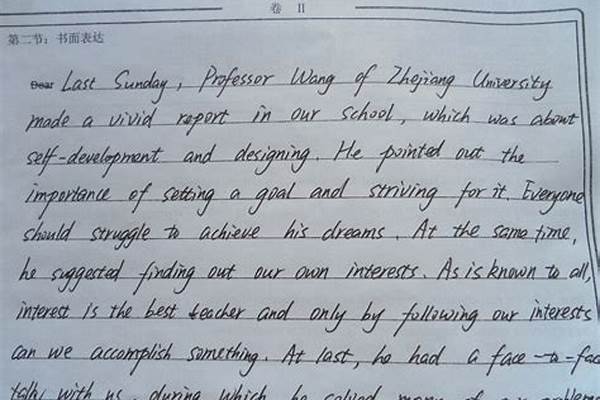 卷 II
第二节：书面表达
Last Sunday, Professor Wang of Zhejiang University
made a vivid report in our school, which was about
self-development and designing. He pointed out the
importance of setting a goal and striving for it. Everyone
should struggle to achieve his dreams. At the same time,
he suggested finding out our own interests. As is known to all,
interest is the best teacher and only by following our interests
can we accomplish something. At last, he had a face-to-fac
talk with us, during which he solved many of our problems